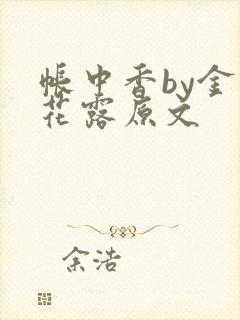 帐中香by金
花露原文
余浩